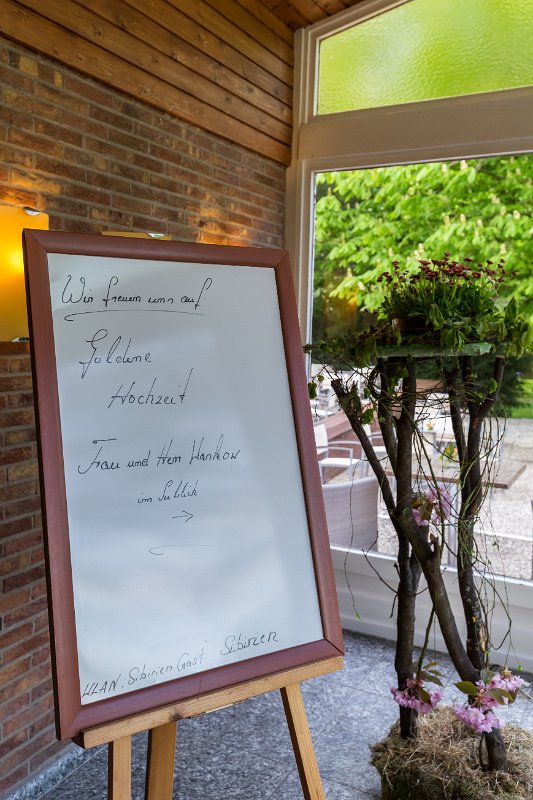 Wir freuen uns auf
Goldene
Hochzeit
Frau und Herr Hankow
im
→
WLAN: Sibirien Gast Sibirien